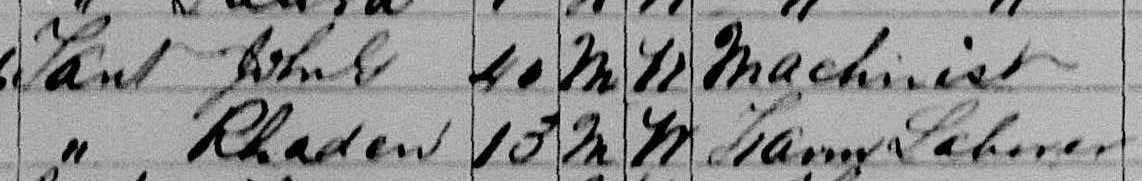 " " W " "
Tant John E 40 M W Machinist
" Rhaden 13 M W Farm Laborer